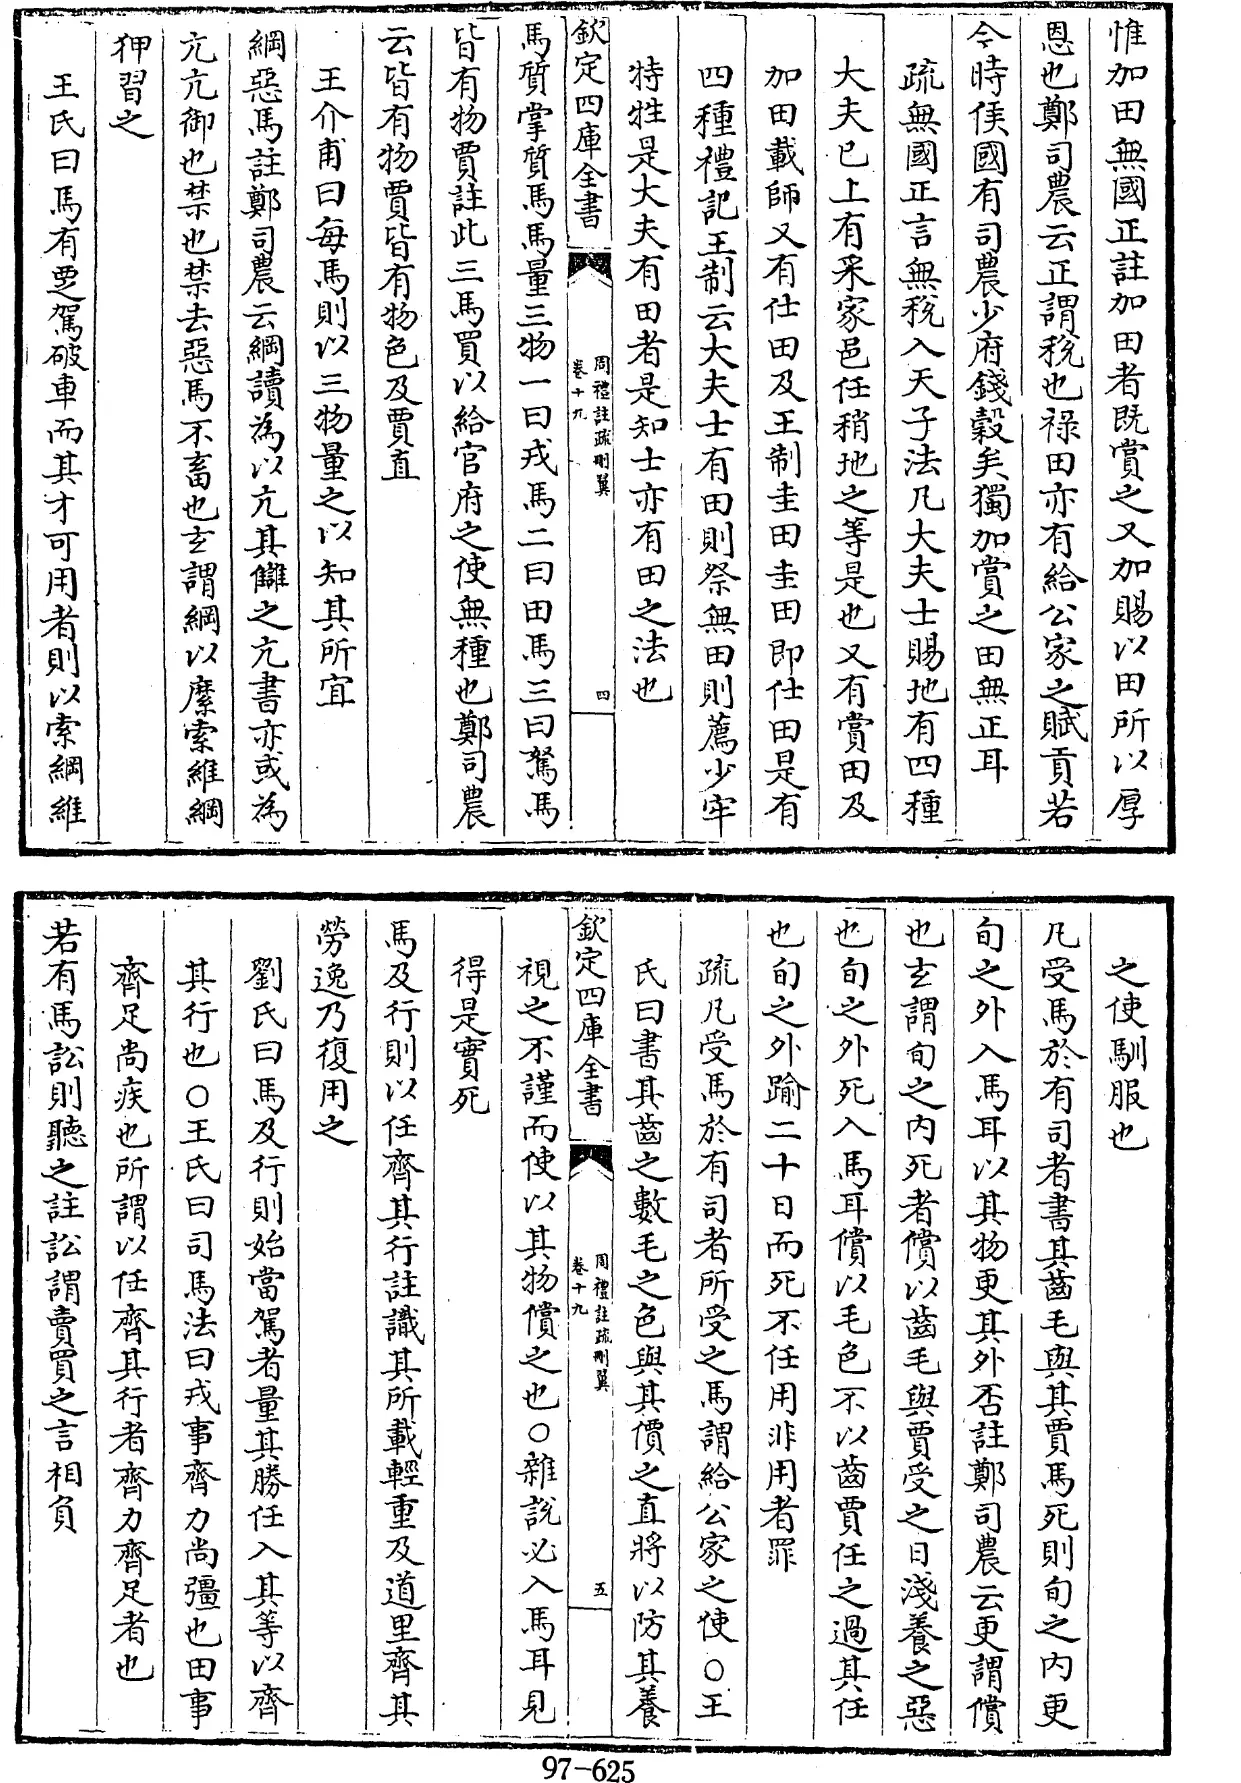 惟加田無國正註加田者既賞之又加賜以田所以厚
恩也鄭司農云正謂稅也祿田亦有給公家之賦貢若
今時侯國有司農少府錢穀矣獨加賞之田無正耳
疏無國正言無稅入天子法凡大夫士賜地有四種
大夫已上有采家邑任稍地之等是也又有賞田及
加田載師又有仕田及王制圭田圭田即仕田是有
四種禮記王制云大夫士有田則祭無田則薦少牢
特牲是大夫有田者是知士亦有田之法也
欽定四庫全書
周禮註疏刪翼
卷十九
四
馬質掌質馬馬量三物一曰戎馬二曰田馬三曰駑馬
皆有物賈註此三馬買以給官府之使無種也鄭司農
云皆有物賈皆有物色及賈直
王介甫曰每馬則以三物量之以知其所宜
綱惡馬註鄭司農云綱讀為以亢其讎之亢書亦或為
亢亢御也禁也禁去惡馬不畜也玄謂綱以縻索維綱
狎習之
王氏曰馬有覂駕破車而其才可用者則以索綱維
之使馴服也
凡受馬於有司者書其齒毛與其賈馬死則旬之內更
旬之外入馬耳以其物更其外否註鄭司農云更謂償
也玄謂旬之內死者償以齒毛與賈受之日淺養之惡
也旬之外死入馬耳償以毛色不以齒賈任之過其任
也旬之外踰二十日而死不任用非用者罪
疏凡受馬於有司者所受之馬謂給公家之使○王
氏曰書其齒之數毛之色與其價之直將以防其養
欽定四庫全書
周禮註疏刪翼
卷十九
五
視之不謹而使以其物償之也○雜說必入馬耳見
得是實死
馬及行則以任齊其行註識其所載輕重及道里齊其
勞逸乃復用之
劉氏曰馬及行則始當駕者量其勝任入其等以齊
其行也○王氏曰司馬法曰戎事齊力尚彊也田事
齊足尚疾也所謂以任齊其行者齊力齊足者也
若有馬訟則聽之註訟謂賣買之言相負
97-625